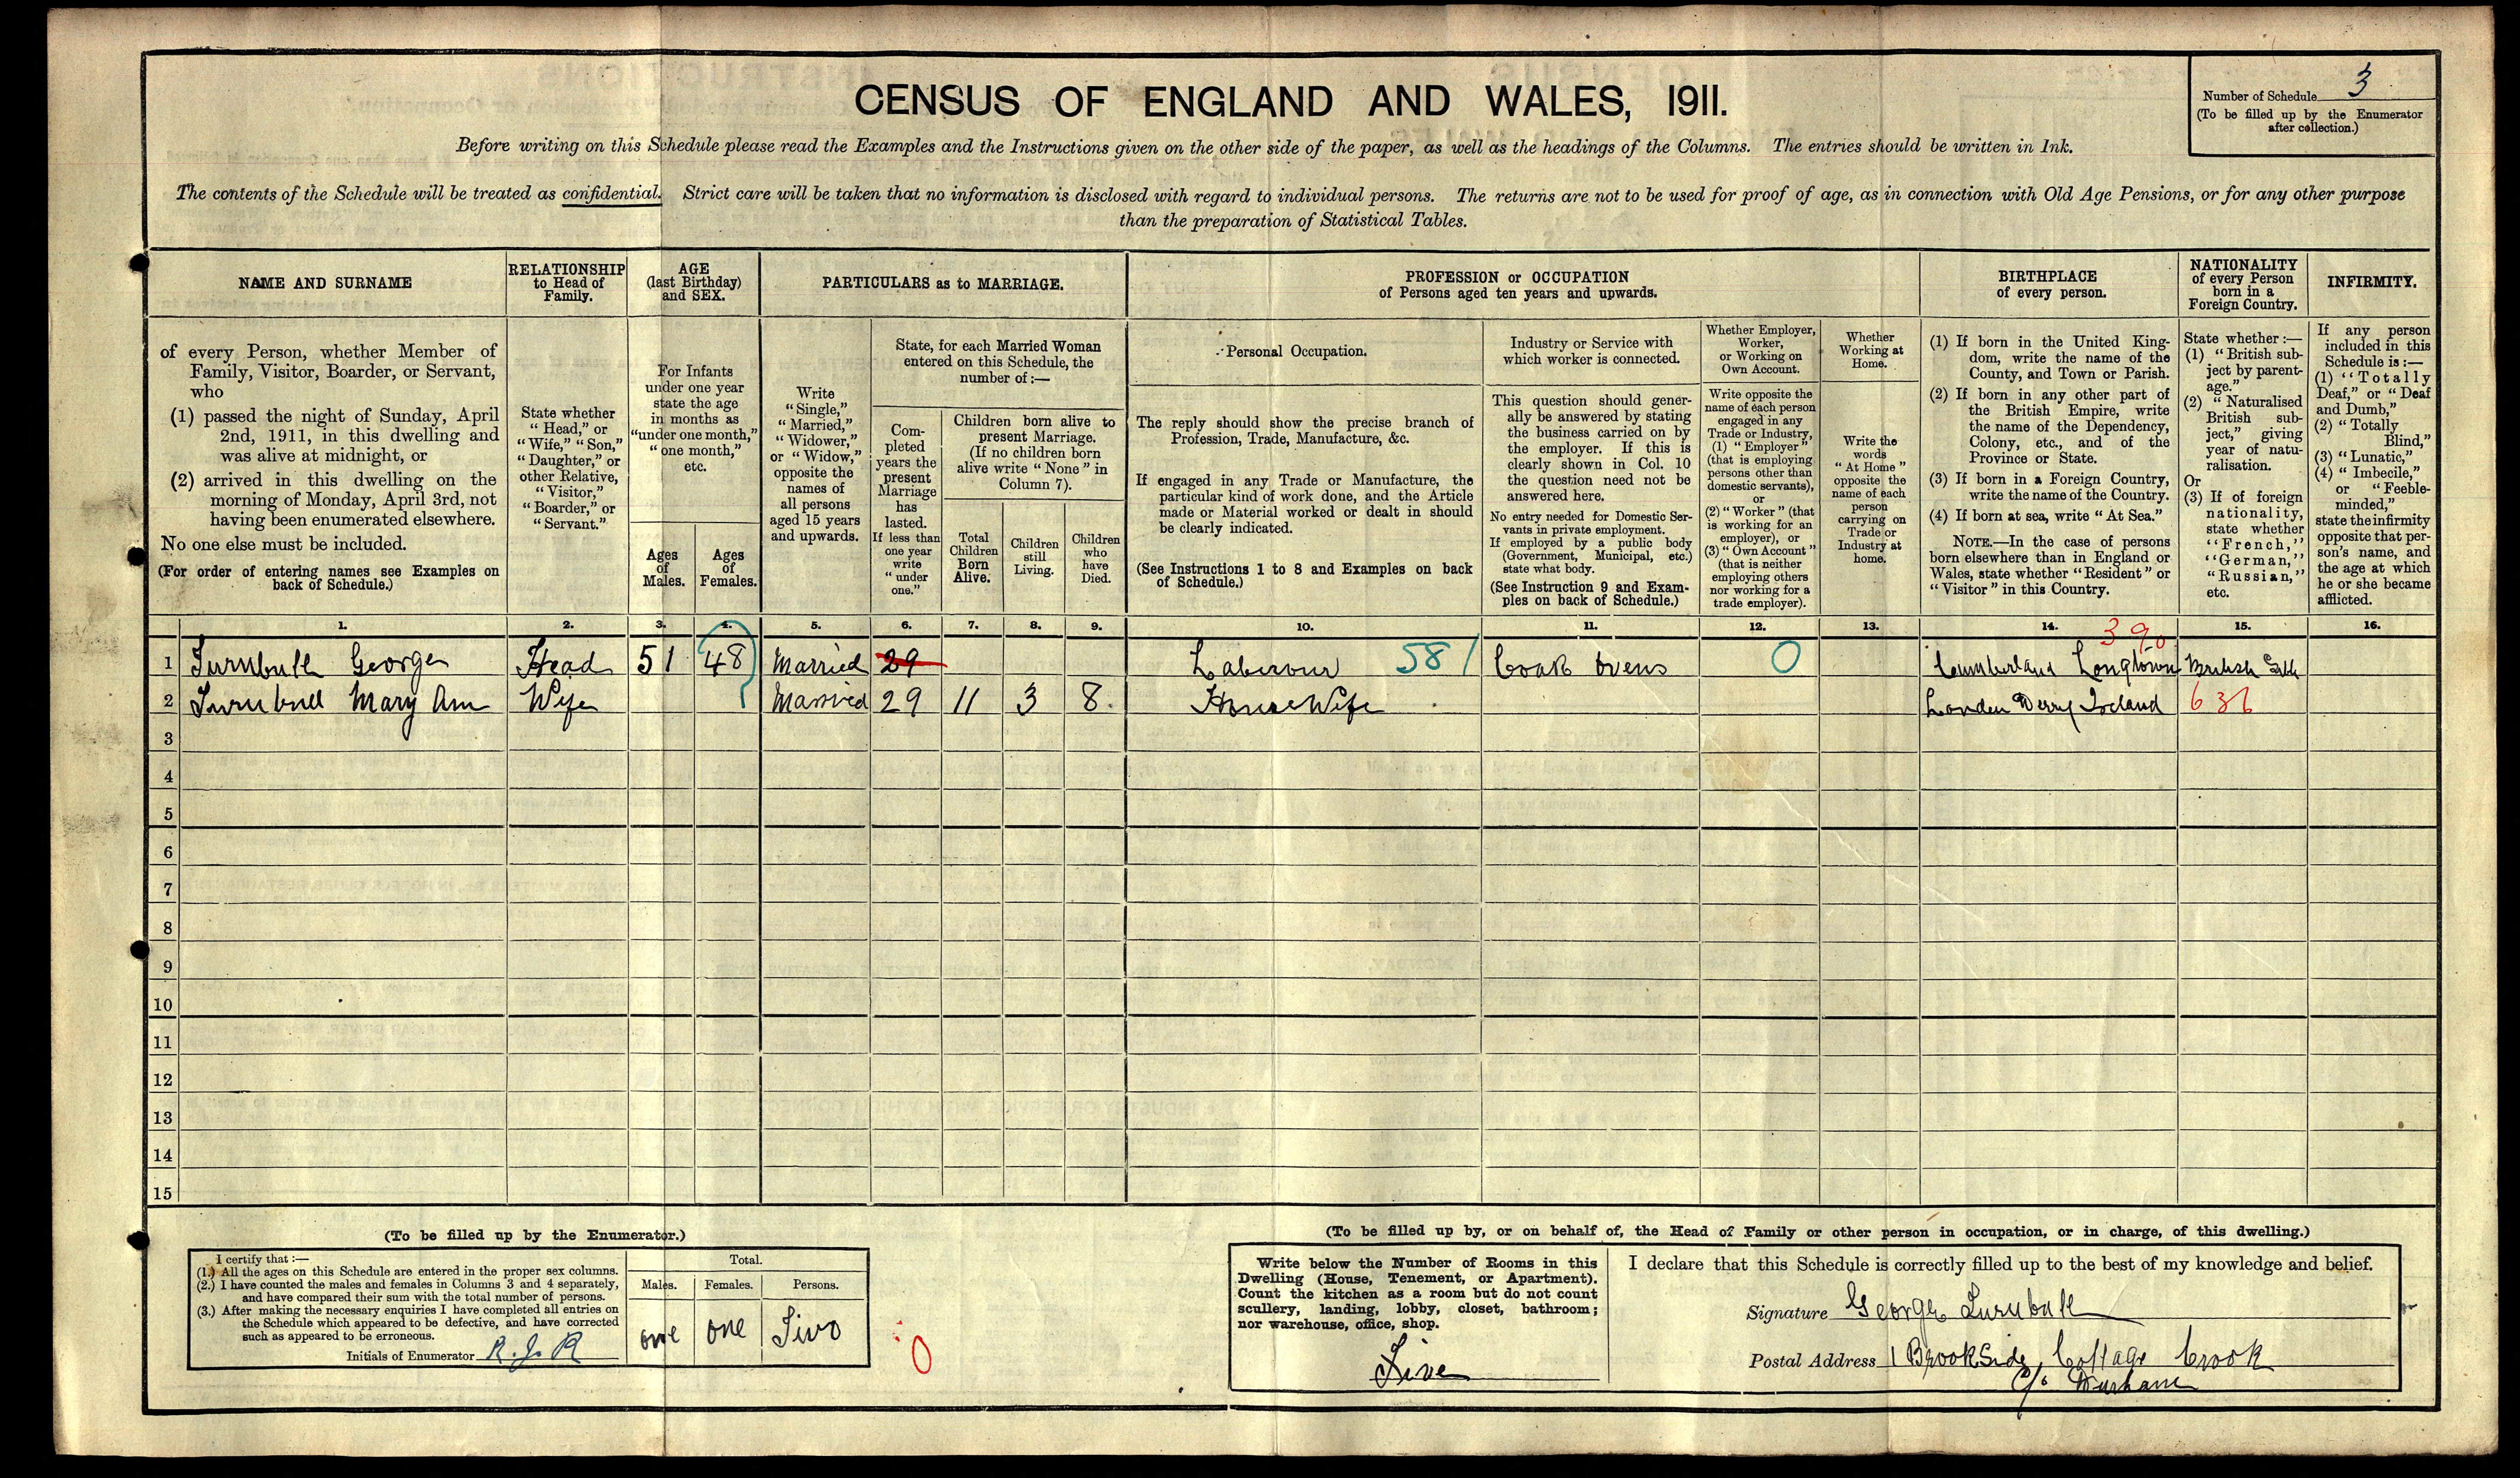 CENSUS OF ENGLAND AND WALES, 1911.
Number of Schedule 3
(To be filled up by the Enumerator
after collection.)
Before writing on this Schedule please read the Examples and the Instructions given on the other side of the paper, as well as the headings of the Columns. The entries should be written in Ink.
The contents of the Schedule will be treated as confidential. Strict care will be taken that no information is disclosed with regard to individual persons. The returns are not to be used for proof of age, as in connection with Old Age Pensions, or for any other purpose
than the preparation of Statistical Tables.
NAME AND SURNAME
of every Person, whether Member of
Family, Visitor, Boarder, or Servant,
who
(1) passed the night of Sunday, April
2nd, 1911, in this dwelling and
was alive at midnight, or
(2) arrived in this dwelling on the
morning of Monday, April 3rd, not
having been enumerated elsewhere.
No one else must be included.
(For order of entering names see Examples on
back of Schedule.)
RELATIONSHIP
to Head of
Family.
State whether
"Head," or
"Wife," "Son,"
"Daughter," or
other Relative,
"Visitor,"
"Boarder," or
"Servant."
AGE
(last Birthday)
and SEX.
For Infants
under one year
state the age
in months as
"under one month,"
"one month,"
etc.
Ages
of
Males.
Ages
of
Females.
PARTICULARS as to MARRIAGE.
Write
"Single,"
"Married,"
"Widower,"
or "Widow,"
opposite the
names of
all persons
aged 15 years
and upwards.
State, for each Married Woman
entered on this Schedule, the
number of:—
Com-
pleted
years the
present
Marriage
has
lasted.
If less than
one year
write
"under
one."
Children born alive to
present Marriage.
(If no children born
alive write "None" in
Column 7).
Total
Children
Born
Alive.
Children
still
Living.
Children
who
have
Died.
PROFESSION or OCCUPATION
of Persons aged ten years and upwards.
Personal Occupation.
The reply should show the precise branch of
Profession, Trade, Manufacture, &c.
If engaged in any Trade or Manufacture, the
particular kind of work done, and the Article
made or Material worked or dealt in should
be clearly indicated.
(See Instructions 1 to 8 and Examples on back
of Schedule.)
Industry or Service with
which worker is connected.
This question should gener-
ally be answered by stating
the business carried on by
the employer. If this is
clearly shown in Col. 10
the question need not be
answered here.
No entry needed for Domestic Ser-
vants in private employment.
If employed by a public body
(Government, Municipal, etc.)
state what body.
(See Instruction 9 and Exam-
ples on back of Schedule.)
Whether Employer,
Worker,
or Working on
Own Account.
Write opposite the
name of each person
engaged in any
Trade or Industry,
(1) "Employer"
(that is employing
persons other than
domestic servants),
or
(2) "Worker" (that
is working for an
employer), or
(3) "Own Account"
(that is neither
employing others
nor working for a
trade employer).
Whether
Working at
Home.
Write the
words
"At Home"
opposite the
name of each
person
carrying on
Trade or
Industry at
home.
BIRTHPLACE
of every person.
(1) If born in the United King-
dom, write the name of the
County, and Town or Parish.
(2) If born in any other part of
the British Empire, write
the name of the Dependency,
Colony, etc., and of the
Province or State.
(3) If born in a Foreign Country,
write the name of the Country.
(4) If born at sea, write "At Sea."
NOTE.—In the case of persons
born elsewhere than in England or
Wales, state whether "Resident" or
"Visitor" in this Country.
NATIONALITY
of every Person
born in a
Foreign Country.
State whether:—
(1) "British sub-
ject by parent-
age."
(2) "Naturalised
British sub-
ject," giving
year of natu-
ralisation.
Or
(3) If of foreign
nationality,
state whether
"French,"
"German,"
"Russian,"
etc.
INFIRMITY.
If any person
included in this
Schedule is:—
(1) "Totally
Deaf," or "Deaf
and Dumb,"
(2) "Totally
Blind,"
(3) "Lunatic,"
(4) "Imbecile,"
or "Feeble-
minded,"
state the infirmity
opposite that per-
son's name, and
the age at which
he or she became
afflicted.
1. 2. 3. 4. 5. 6. 7. 8. 9. 10. 11. 12. 13. 14. 15. 16.
390
1 Turnbull George Head 51 48 Married 29 Labourur 581 Coak Ovens 0 Cumberland Longtown British
2 Turnbull Mary Ann Wife Married 29 11 3 8. HouseWife London Derry Ireland 636
3
4
5
6
7
8
9
10
11
12
13
14
15
(To be filled up by the Enumerator.)
I certify that:—
(1.) All the ages on this Schedule are entered in the proper sex columns.
(2.) I have counted the males and females in Columns 3 and 4 separately,
and have compared their sum with the total number of persons.
(3.) After making the necessary enquiries I have completed all entries on
the Schedule which appeared to be defective, and have corrected
such as appeared to be erroneous.
Initials of Enumerator R.J.R
Total.
Males. Females. Persons.
one one Two
0
(To be filled up by, or on behalf of, the Head of Family or other person in occupation, or in charge, of this dwelling.)
Write below the Number of Rooms in this
Dwelling (House, Tenement, or Apartment).
Count the kitchen as a room but do not count
scullery, landing, lobby, closet, bathroom;
nor warehouse, office, shop.
Five
I declare that this Schedule is correctly filled up to the best of my knowledge and belief.
Signature George Turnbull
Postal Address 1 BrookSide, Cottage Crook
C/o Durham